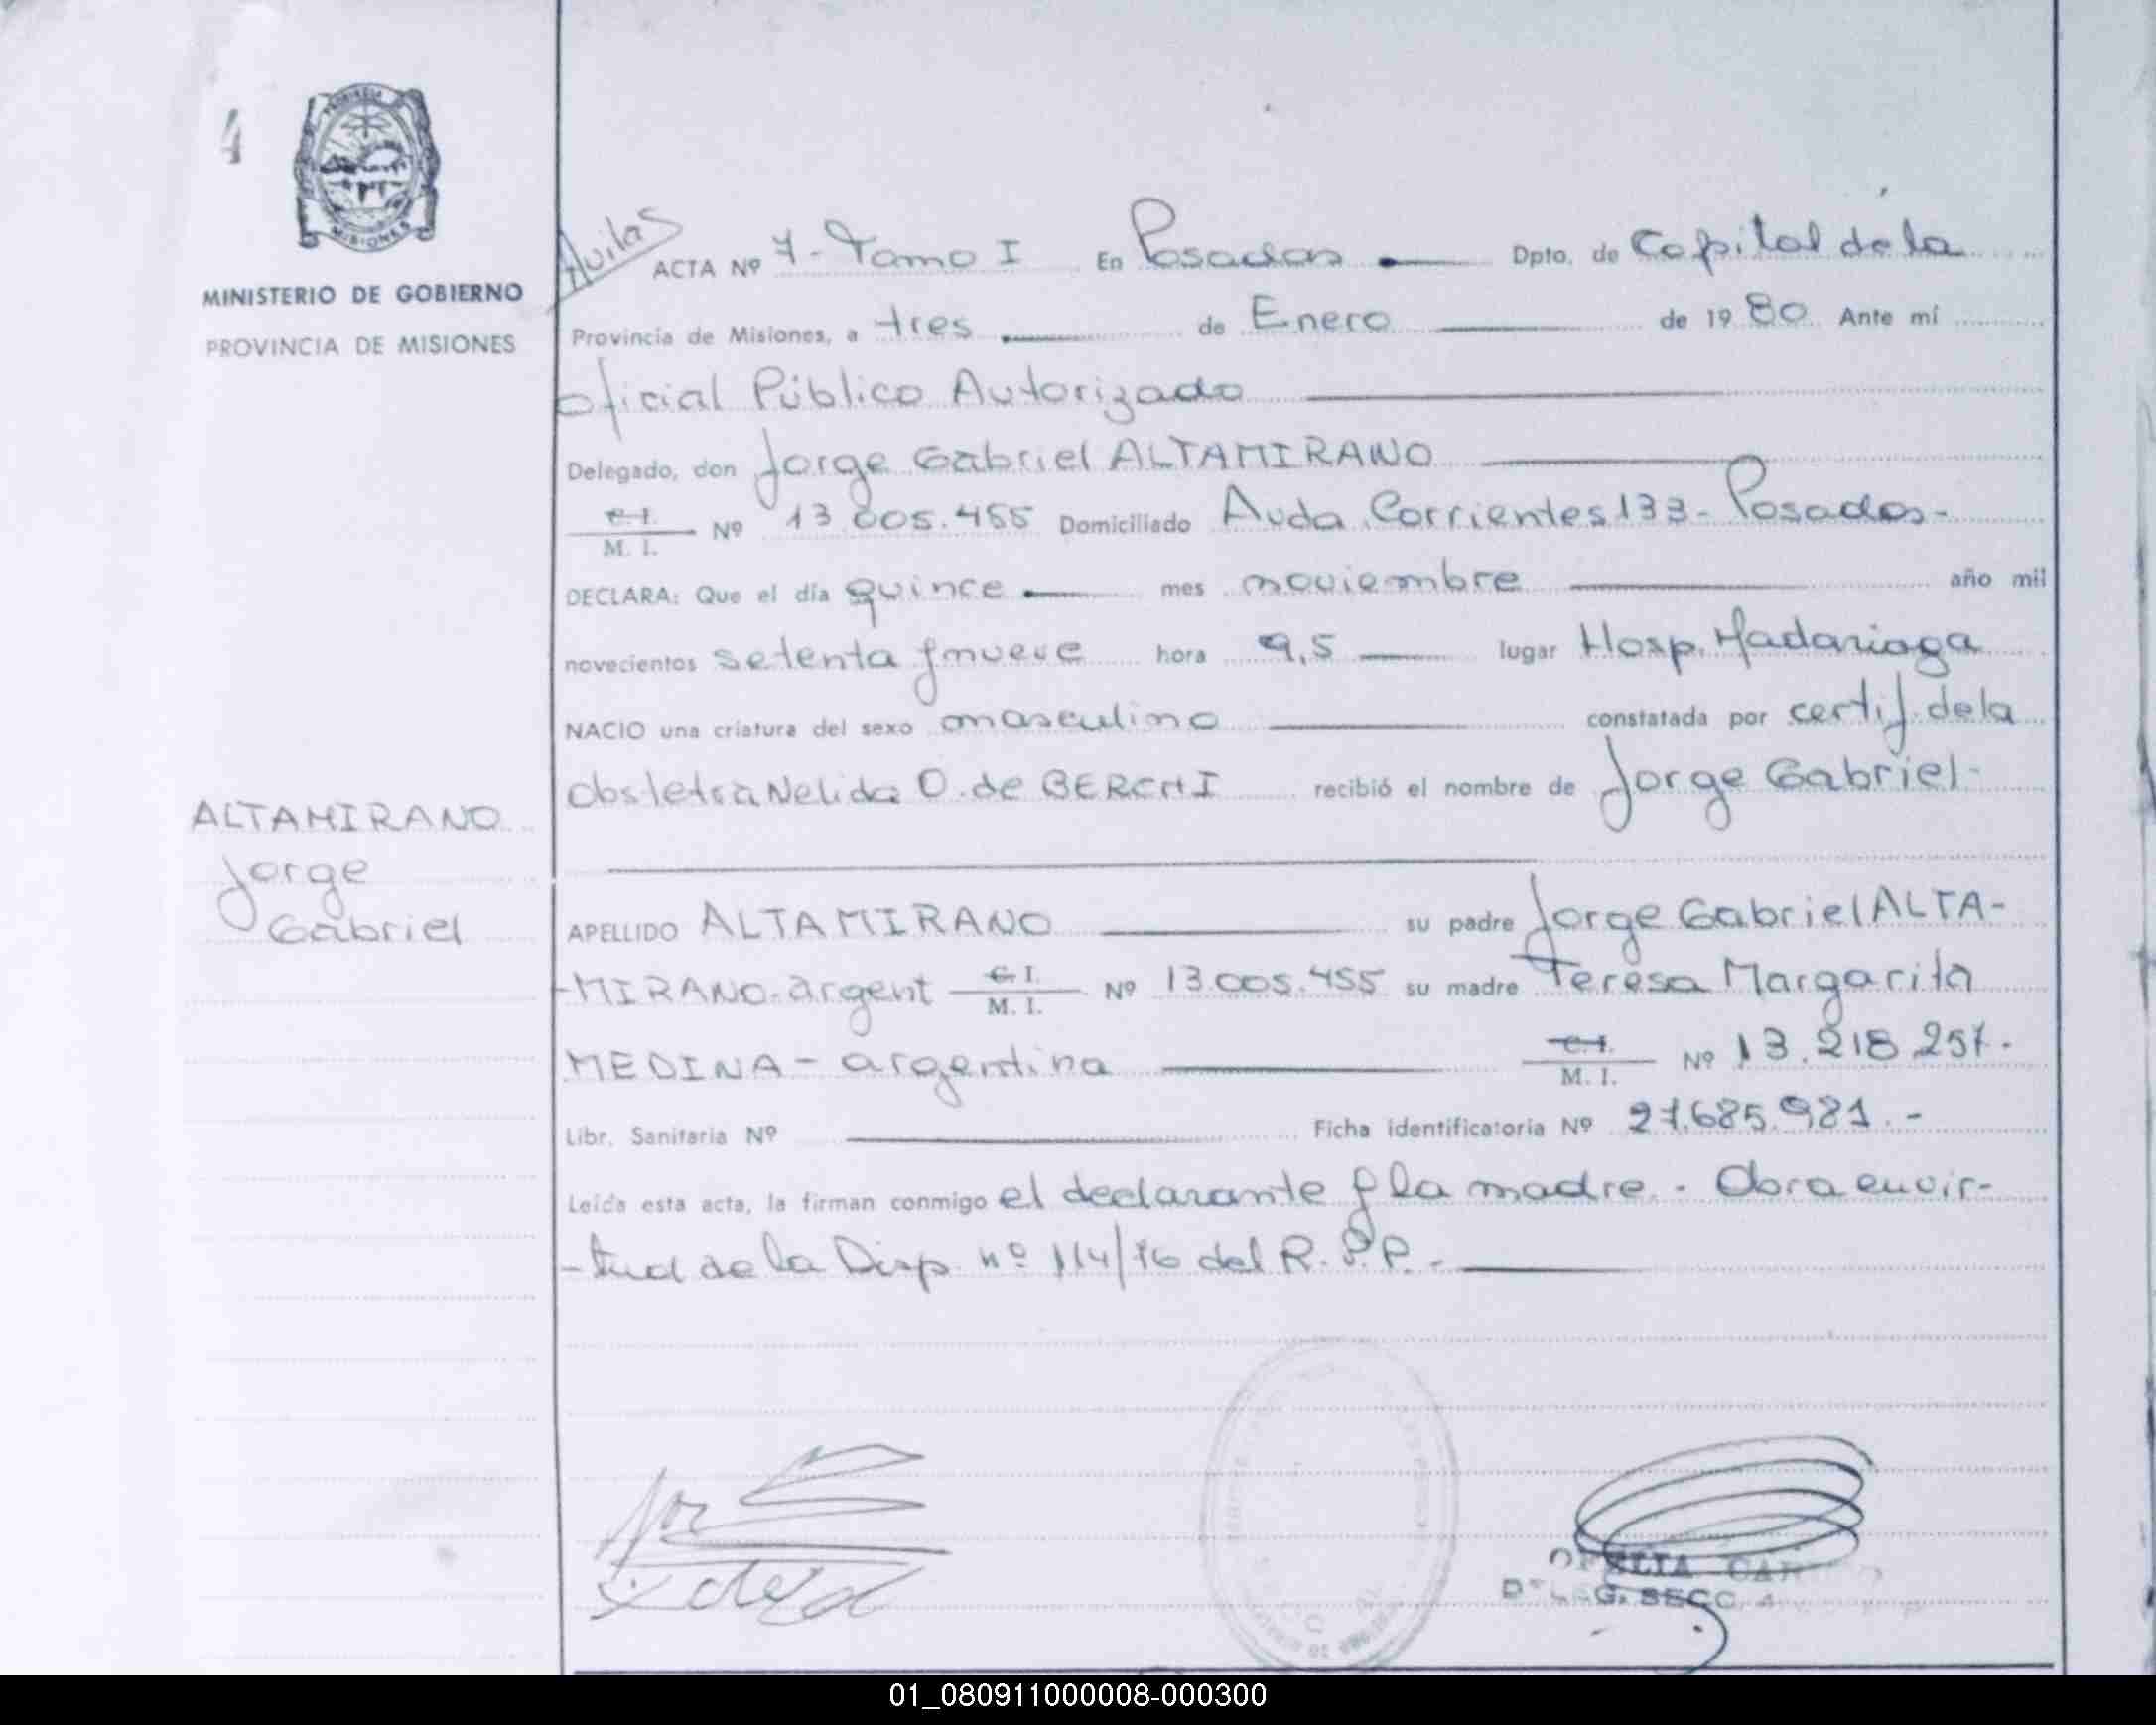 4
PROVINCIA
MISIONES
MINISTERIO DE GOBIERNO
PROVINCIA DE MISIONES
ALTAMIRANO
Jorge
Gabriel
Avilas
ACTA Nº 7 - Tomo I En Posadas Dpto. de Capital de la
Provincia de Misiones, a tres de Enero de 1980 Ante mí
oficial Público Autorizado
Delegado, don Jorge Gabriel ALTAMIRANO
C.I. M. I. Nº 13.005.455 Domiciliado Avda Corrientes 133 - Posadas -
DECLARA: Que el día quince mes noviembre año mil
novecientos setenta y nueve hora 9,5 lugar Hosp. Madariaga
NACIO una criatura del sexo masculino constatada por certif. de la
Obstetra Nelida O. de BERCHI recibió el nombre de Jorge Gabriel -
APELLIDO ALTAMIRANO su padre Jorge Gabriel ALTA-
-MIRANO-argent C.I. M. I. Nº 13.005.455 su madre Teresa Margarita
MEDINA - argentina C.I. M. I. Nº 13.218.257.
Libr. Sanitaria Nº Ficha identificatoria Nº 27.685.981.-
Leída esta acta, la firman conmigo el declarante y la madre. - Obra en vir-
-tud de la Disp. nº 114/76 del R.P.P. -
SECC.
01_080911000008-000300